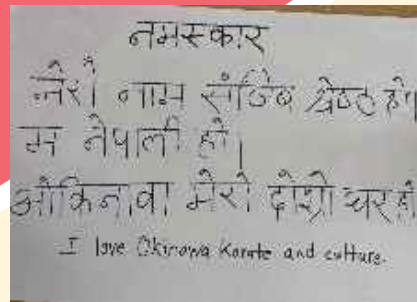 नमस्कार
मेरो नाम संजिब श्रेष्ठ हो।
म नेपाली हो।
ओकिनावा मेरो दोश्रो घर हो
I love Okinawa Karate and culture.